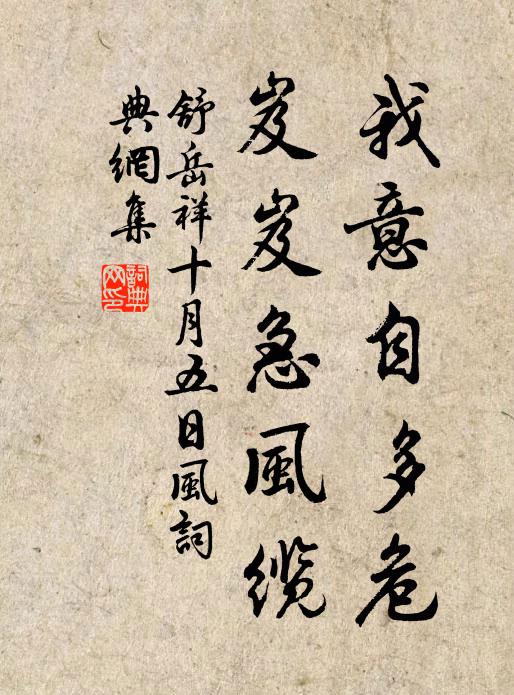 我意自多危
岌岌急风缆
舒岳祥十月五日風詞
典網集
詞典
网印